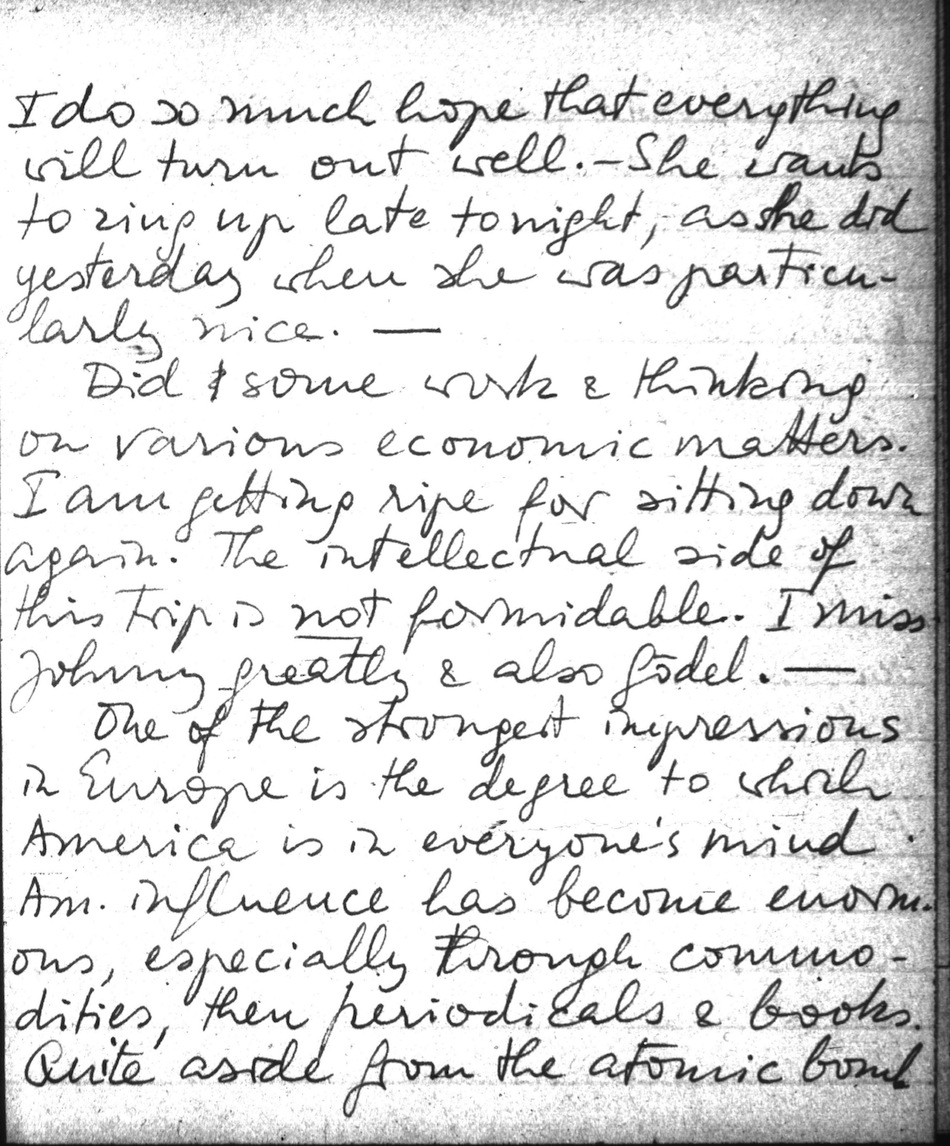 I do so much hope that everything
will turn out well. – She wants
to ring up late tonight, as she did
yesterday when she was particu-
larly nice. —
Did some work & thinking
on various economic matters.
I am getting ripe for sitting down
again. The intellectual side of
this trip is not formidable. I miss
Johnny greatly & also Gödel. —
One of the strongest impressions
in Europe is the degree to which
America is in everyone's mind.
Am. influence has become enorm-
ous, especially through commo-
dities, then periodicals & books.
Quite aside from the atomic bomb